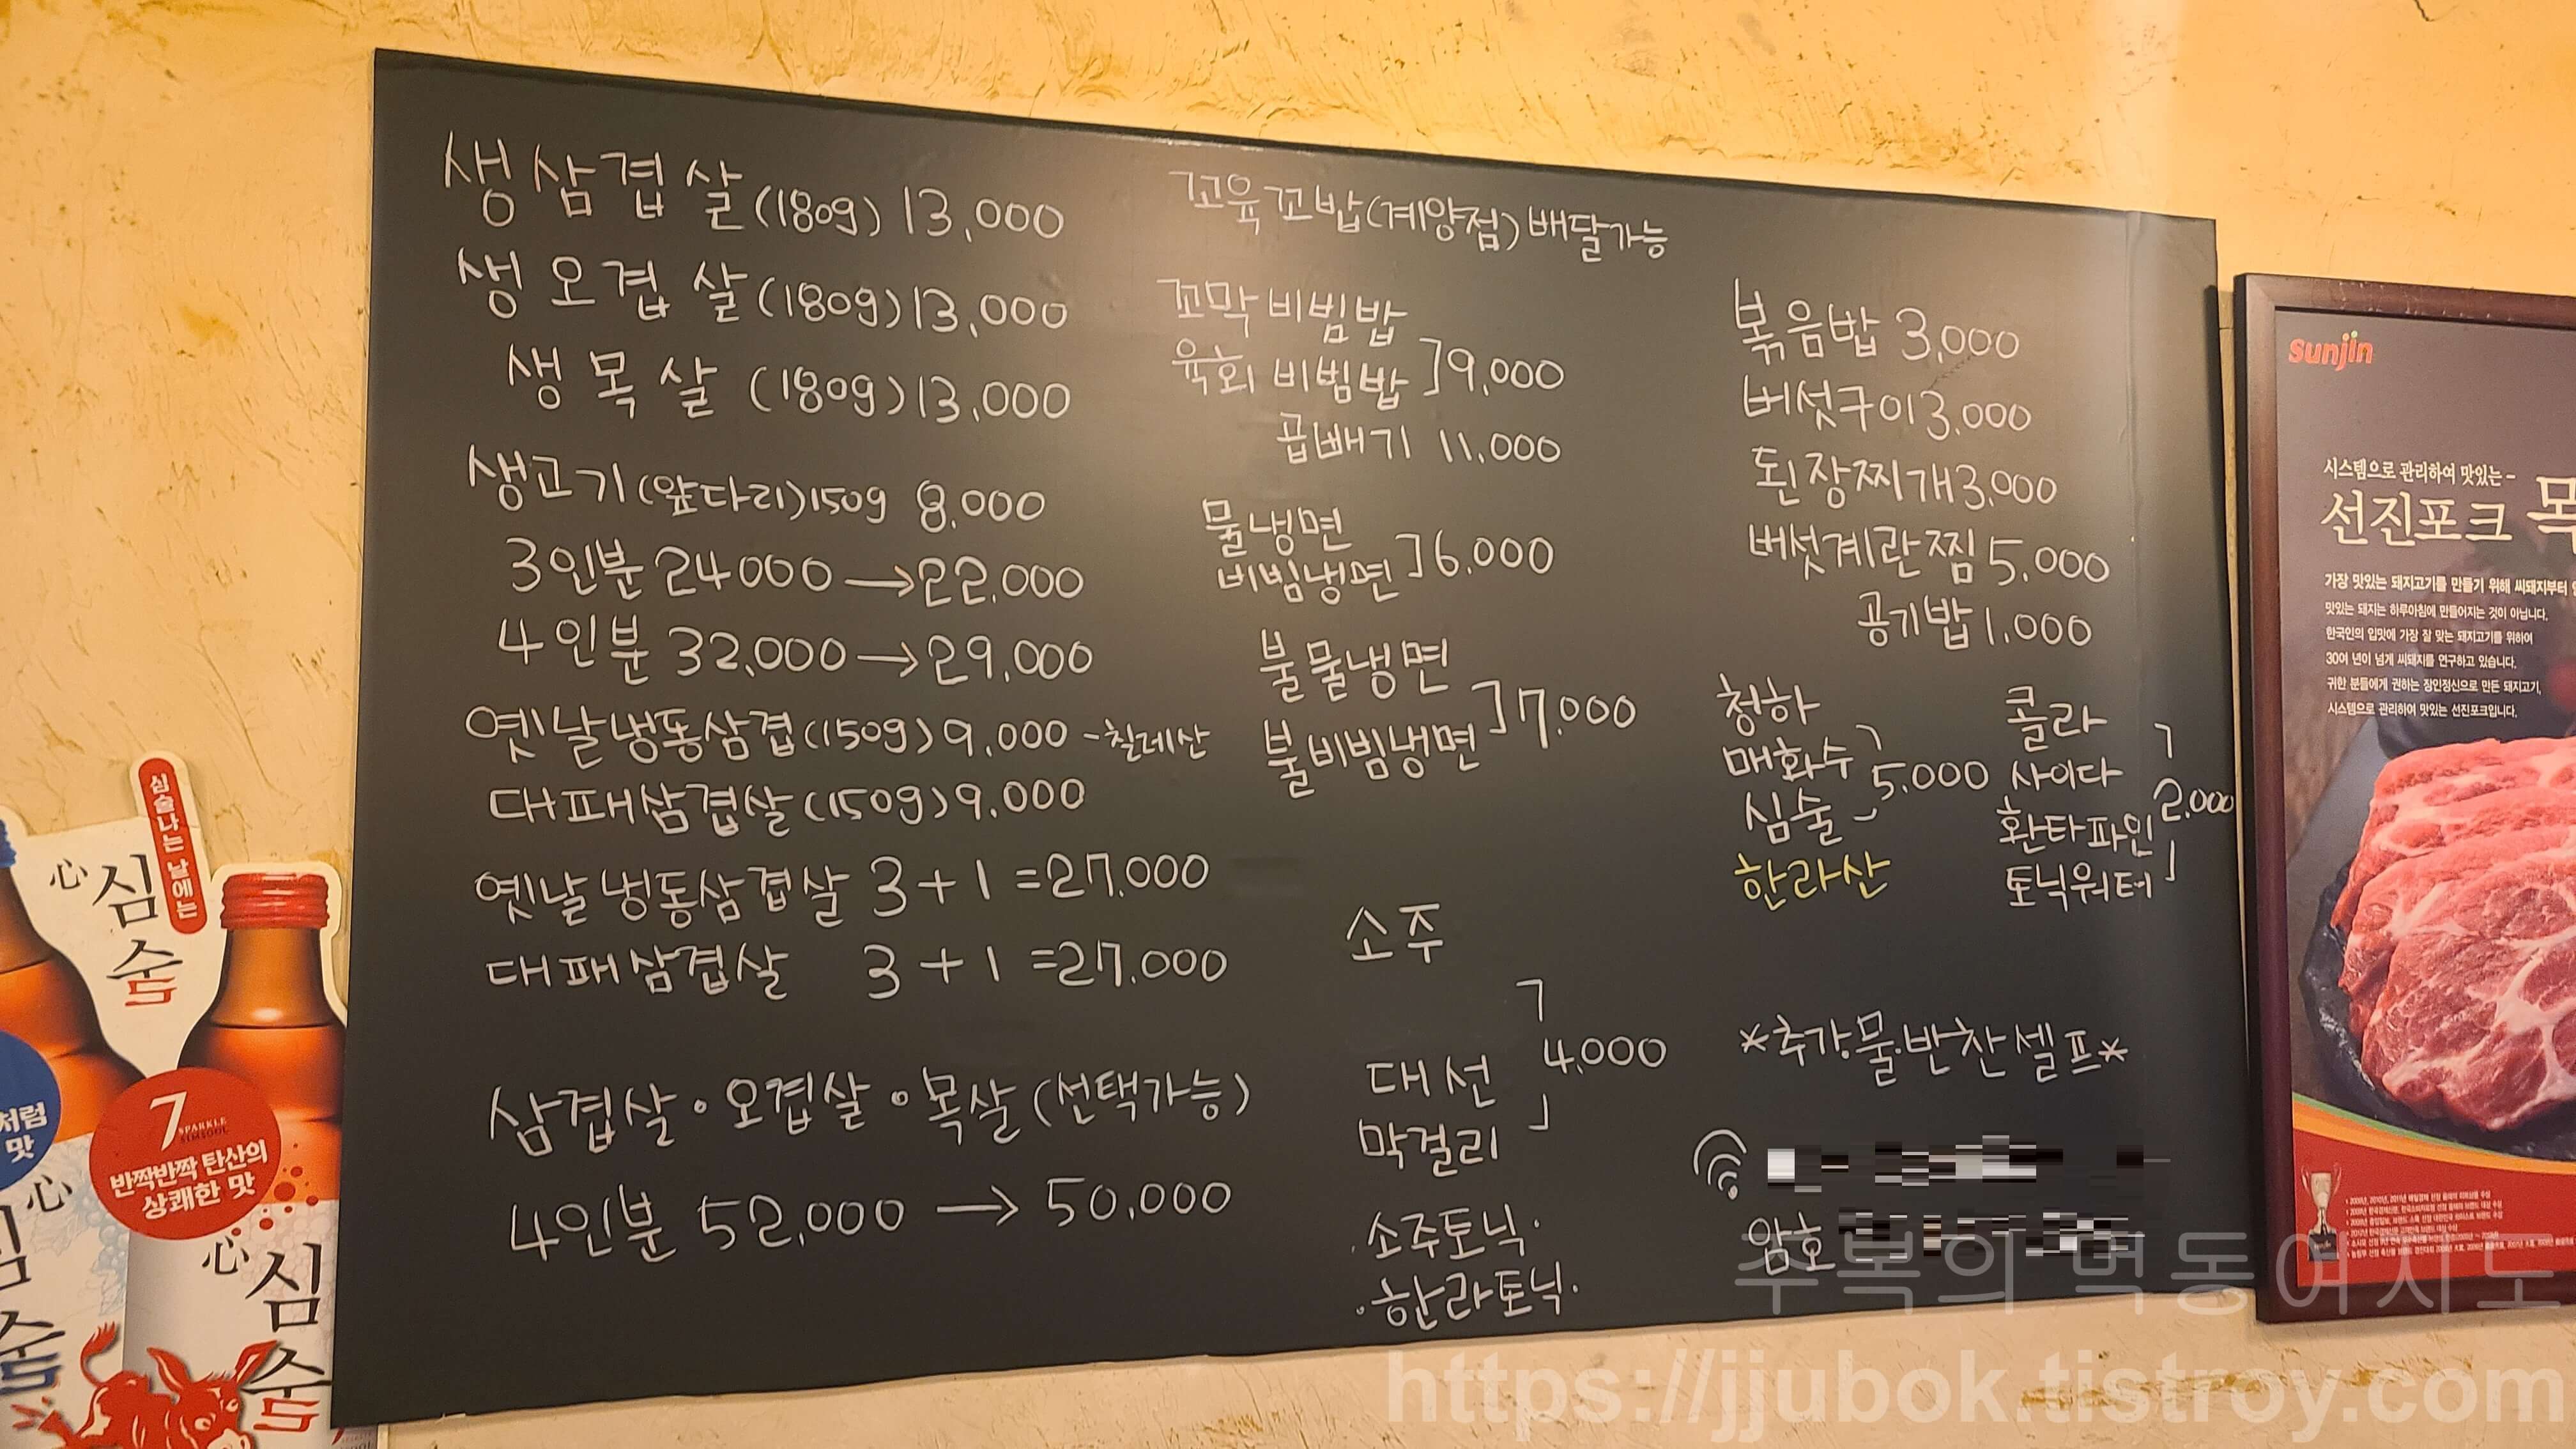 생삼겹살(180g) 13,000
생오겹살(180g) 13,000
생목살 (180g) 13,000
생고기(앞다리)150g 8,000
3인분 24000→22,000
4인분 32,000→29,000
옛날냉동삼겹(150g) 9,000 -칠레산
대패삼겹살(150g) 9,000
옛날냉동삼겹살 3+1 =27,000
대패삼겹살 3+1 =27,000
삼겹살·오겹살·목살(선택가능)
4인분 52,000 → 50,000
꼬육꼬밥(계양점) 배달가능
꼬막비빔밥
육회비빔밥 ]9,000
곱빼기 11,000
물냉면
비빔냉면 ]6,000
불물냉면
불비빔냉면 ]7,000
소주
대선
막걸리
4,000
·소주토닉·
·한라토닉·
볶음밥 3,000
버섯구이 3,000
된장찌개 3,000
버섯계란찜 5,000
공기밥 1,000
청하
매화수
심술
5,000
한라산
콜라
사이다
환타파인
토닉워터
2,000
*추가물·반찬셀프*
암호
심술나는 날에는
心 심술
처럼
맛
7
SPARKLE
SIMSOOL
반짝반짝 탄산의
상쾌한 맛
心
心 심술
sunjin
시스템으로 관리하여 맛있는-
선진포크 목
가장 맛있는 돼지고기를 만들기 위해 씨돼지부터
맛있는 돼지는 하루아침에 만들어지는 것이 아닙니다.
한국인의 입맛에 가장 잘 맞는 돼지고기를 위하여
30여 년이 넘게 씨돼지를 연구하고 있습니다.
귀한 분들에게 권하는 장인정신으로 만든 돼지고기,
시스템으로 관리하여 맛있는 선진포크입니다.
주복의 벅동여지도
https://jjubok.tistroy.com